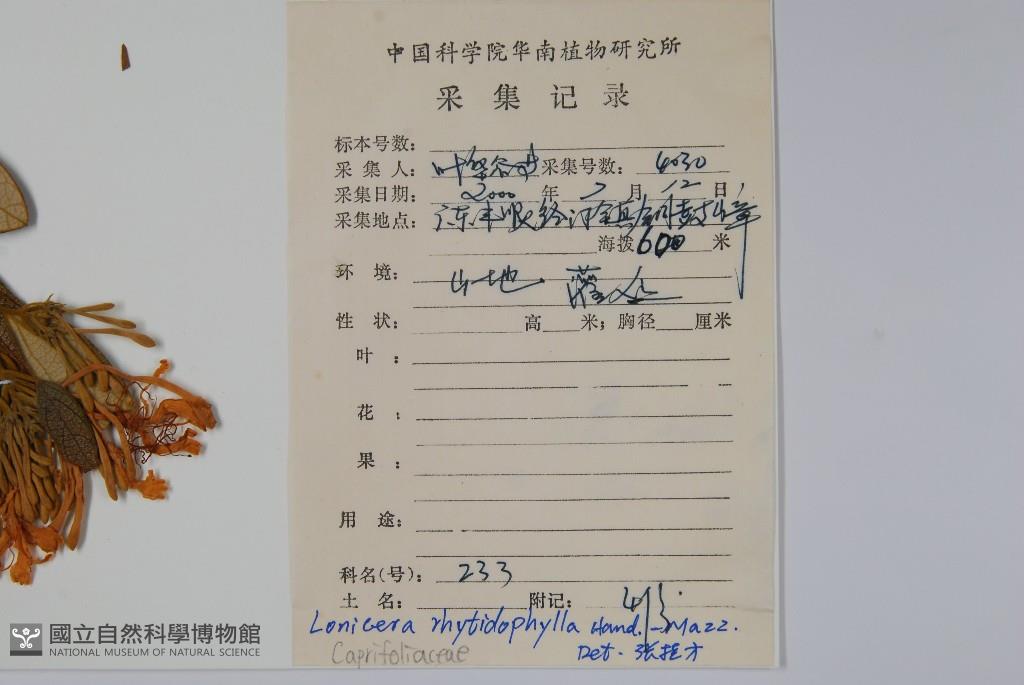 中国科学院华南植物研究所
采集记录
标本号数:
采集人: 叶 采集号数: 4030
采集日期: 2000 年 7 月 12 日
采集地点: 广东丰
海拨 600 米
环境: 山地 灌丛
性状: 高 米; 胸径 厘米
叶:
花:
果:
用途:
科名(号): 233
土名: 附记:
Lonicera rhytidophylla Hand.-Mazz.
Caprifoliaceae
Det. 张
國立自然科學博物館
NATIONAL MUSEUM OF NATURAL SCIENCE